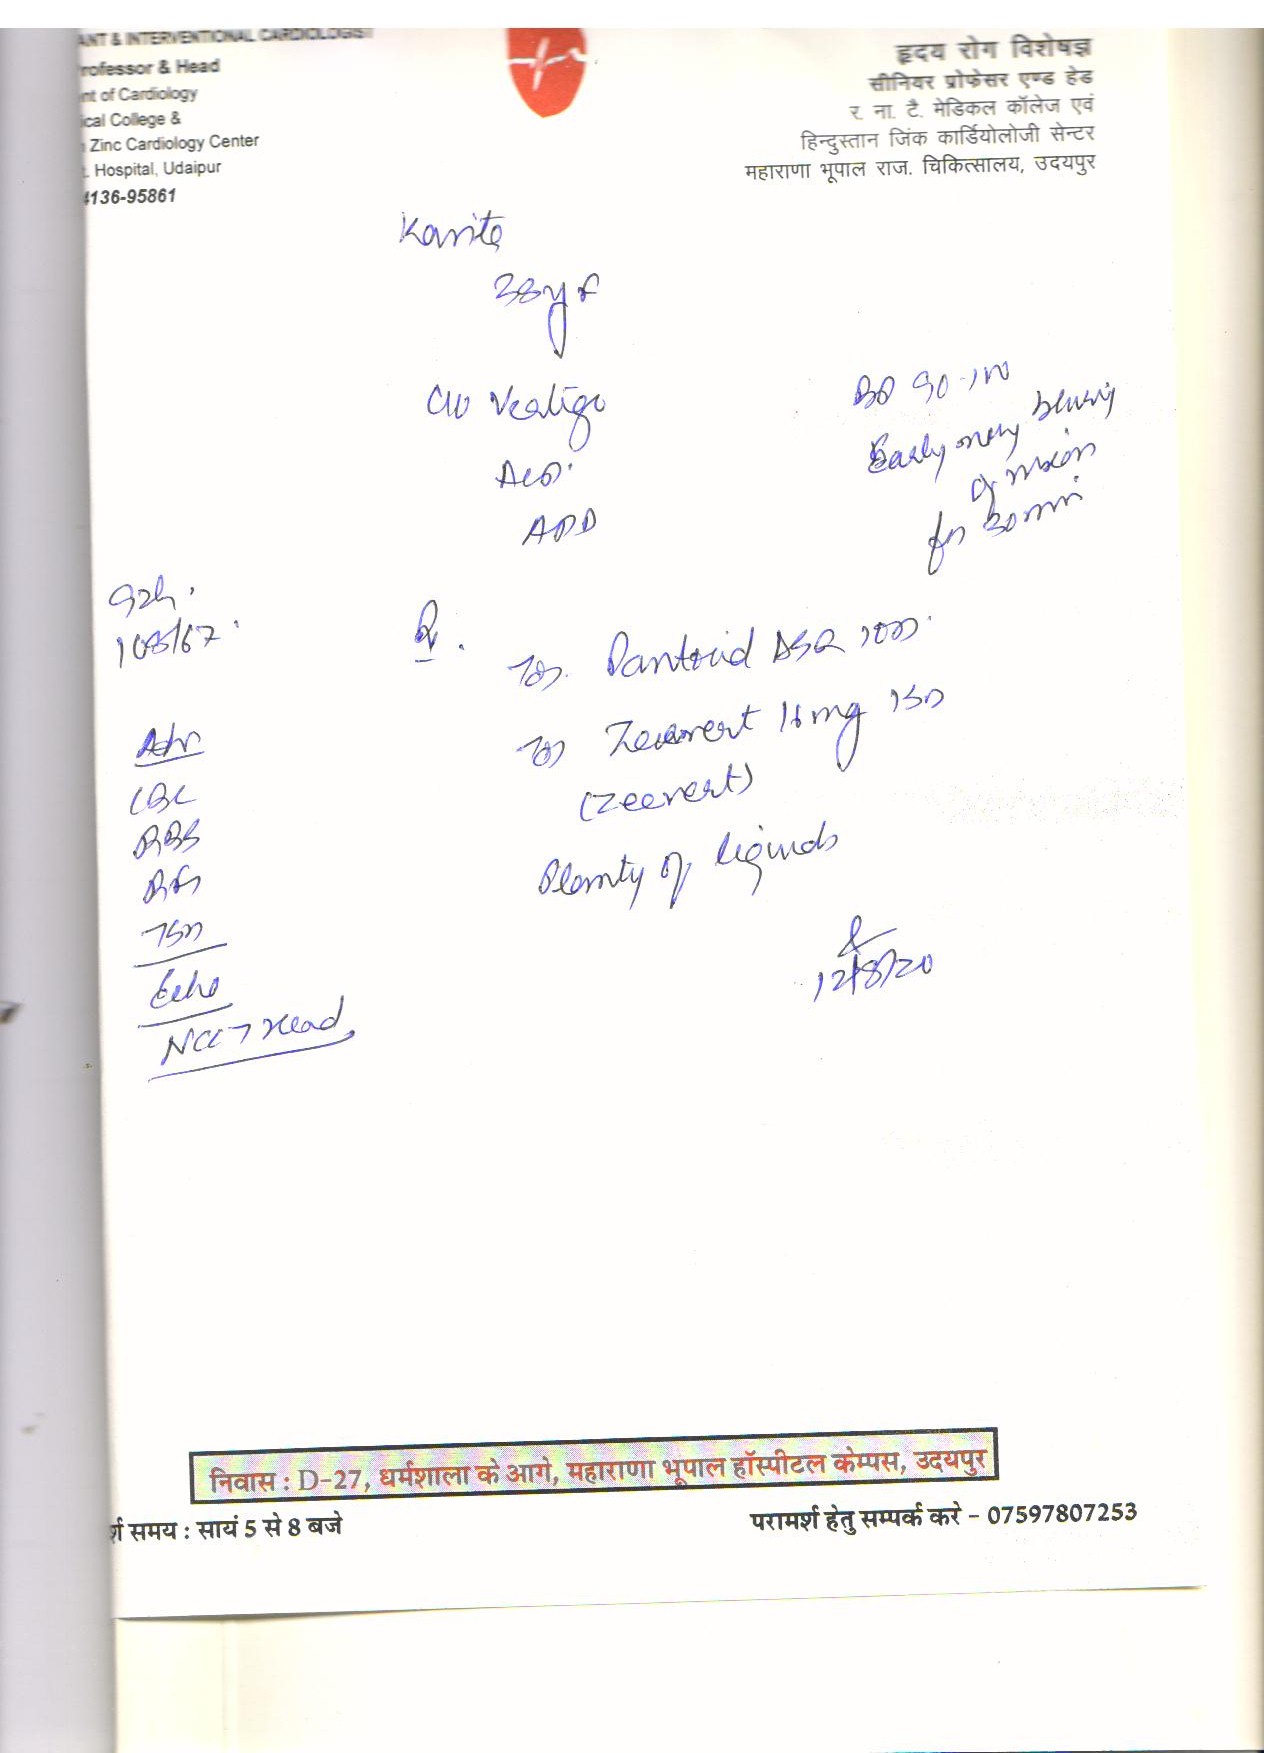 ANT & INTERVENTIONAL CARDIOLOGIST
rofessor & Head
nt of Cardiology
ical College &
Zinc Cardiology Center
. Hospital, Udaipur
4136-95861
हृदय रोग विशेषज्ञ
सीनियर प्रोफेसर एण्ड हेड
र. ना. टै. मेडिकल कॉलेज एवं
हिन्दुस्तान जिंक कार्डियोलोजी सेन्टर
महाराणा भूपाल राज. चिकित्सालय, उदयपुर
Kavita
38y F
Vertigo
APD
BP 90-100
Early blurring
of vision
for 30 min
92/
108/67
Rx.
Pantocid DSR
16mg
(Zeevert)
Plenty of liquids
12/8/20
Adv
CBC
RBS
TSH
Echo
NCCT Head
निवास : D-27, धर्मशाला के आगे, महाराणा भूपाल हॉस्पीटल केम्पस, उदयपुर
र्श समय : सायं 5 से 8 बजे
परामर्श हेतु सम्पर्क करे – 07597807253